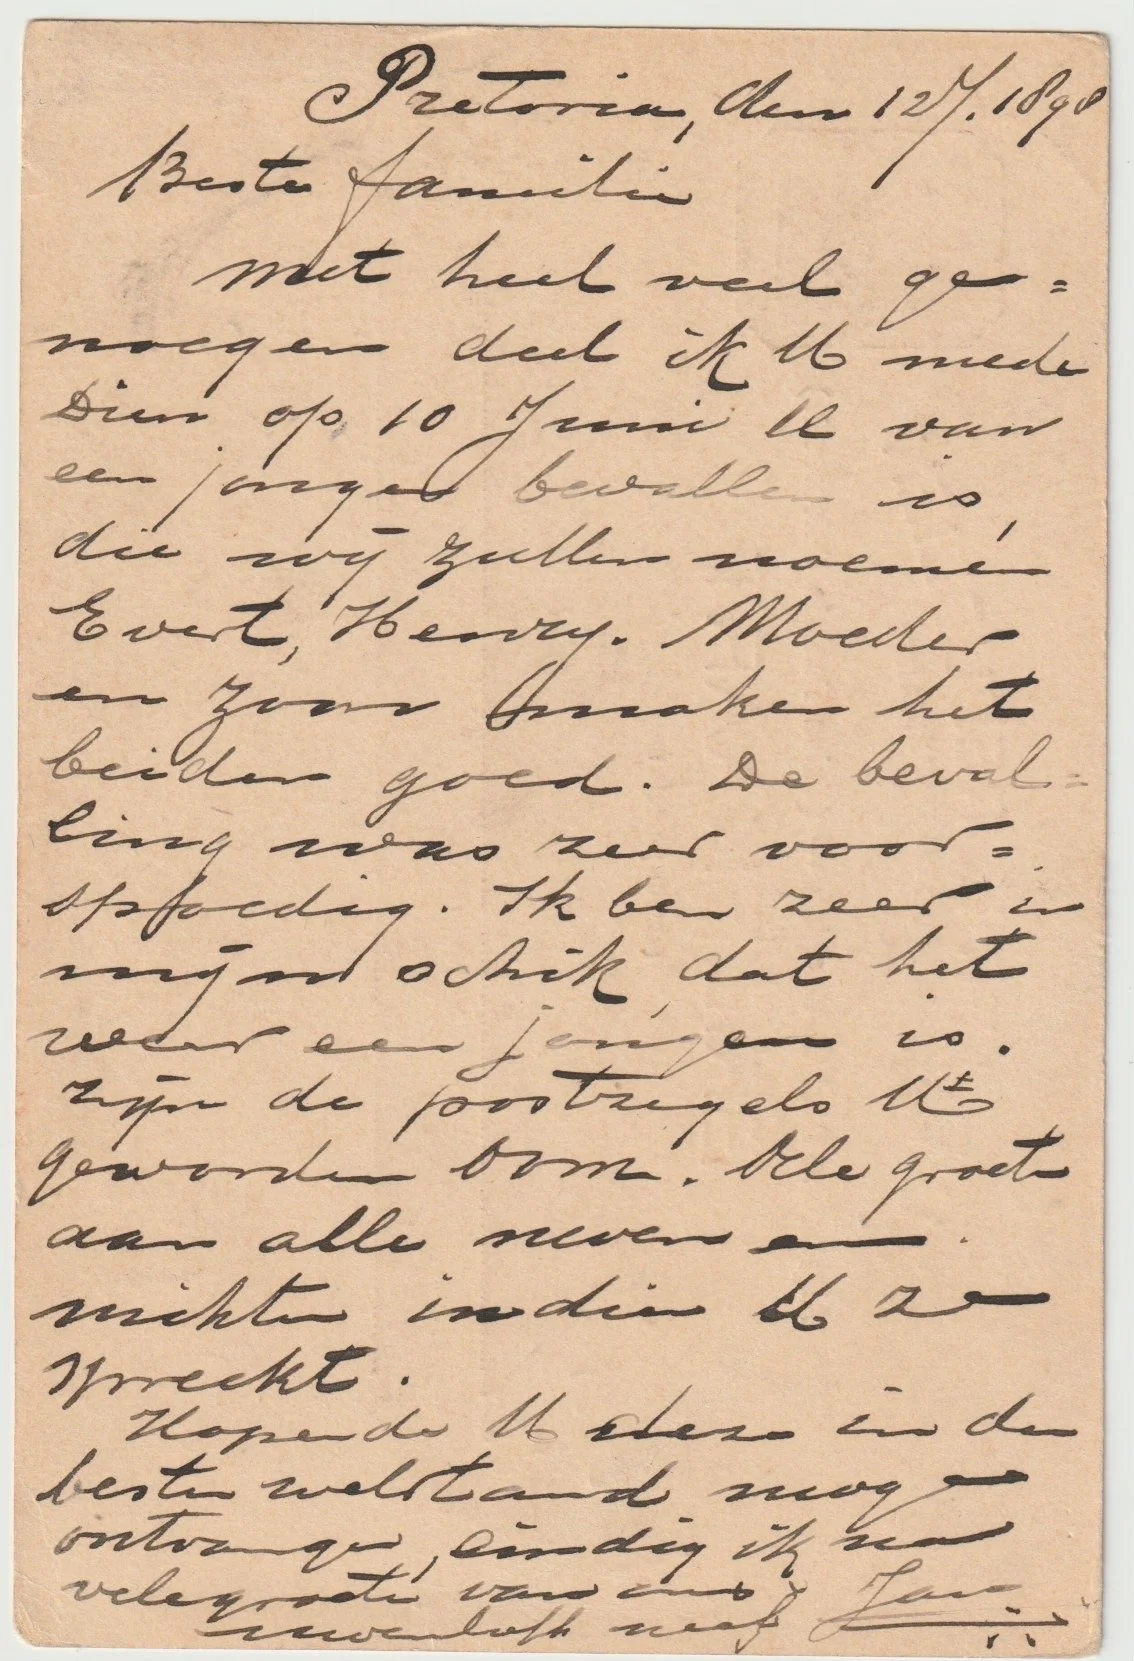 Pretoria, den 12/7. 1898
Beste familie
Met heel veel ge=
noegen deel ik U mede
Dien op 10 Juni ll van
een jongen bevallen is,
die wij zullen noemen
Evert, Henry. Moeder
en zoon maken het
beiden goed. De beval=
ling was zeer voor=
spoedig. Ik ben zeer in
mijn schik, dat het
weer een jongen is.
Zijn de postzegels
geworden Oom. Vele groeten
aan alle neven en
nichten indien U ze
spreekt.
Hopende U deze in den
besten welstand moge
ontvangen, eindig ik na
vele groeten van ons
neef Jan